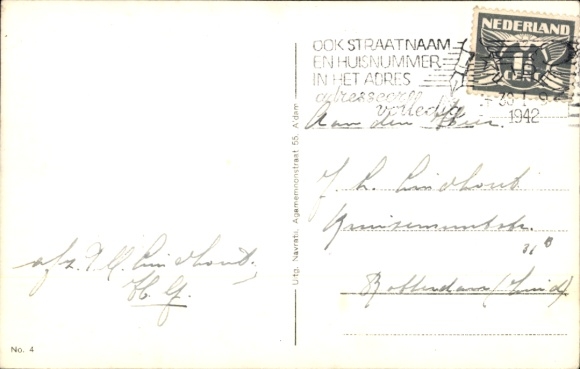 NEDERLAND
OOK STRAATNAAM
EN HUISNUMMER
IN HET ADRES
adresseer
volledig
1942
Aan den Heer
J. L. Lindhout
Rotterdam (Zuid)
afz. Lindhout
H. G.
Uitg. Navratis, Agamemnonstraat 55, A'dam
No. 4